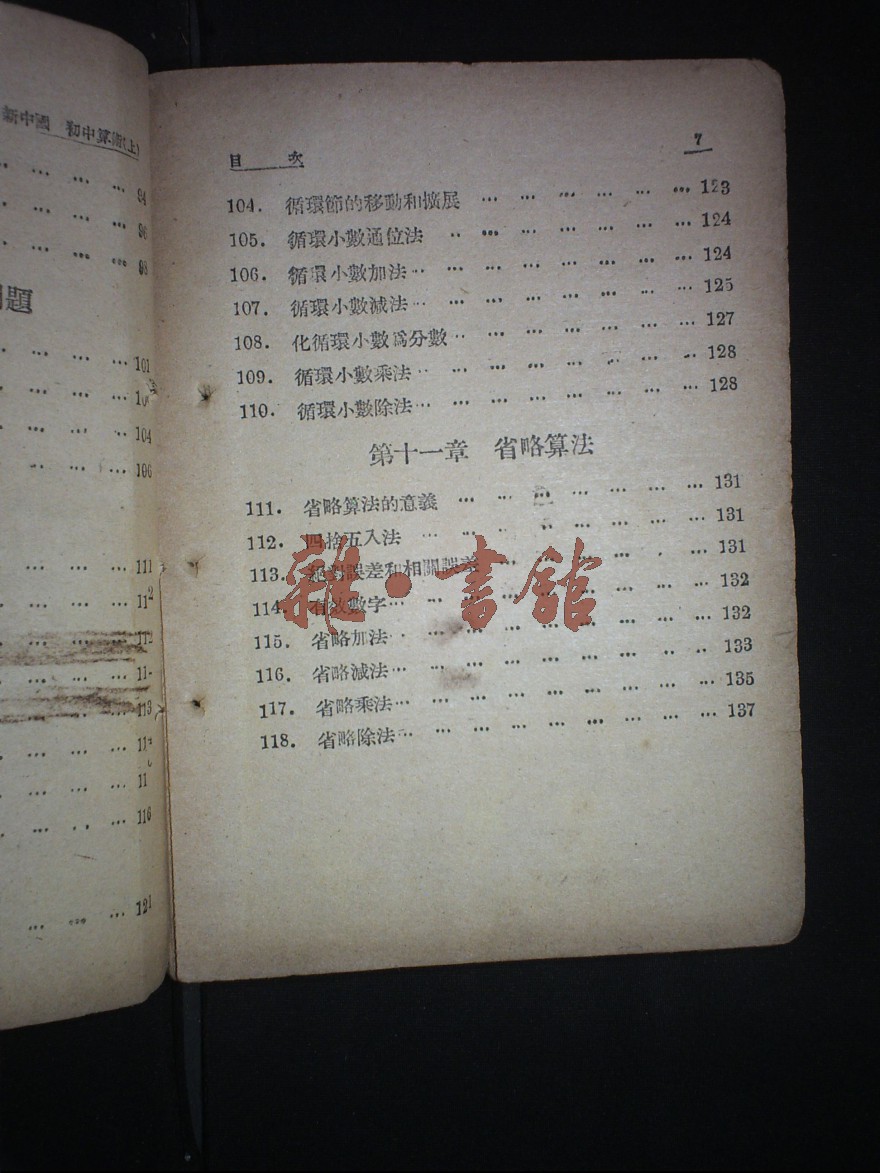 新中國 初中算術(上)
94
96
98
題
101
104
106
111
112
112
113
116
121
目 次 7
104. 循環節的移動和擴展 … … … … … … … 123
105. 循環小數通位法 … … … … … … … 124
106. 循環小數加法 … … … … … … … … 124
107. 循環小數減法 … … … … … … … … 125
108. 化循環小數爲分數 … … … … … … … 127
109. 循環小數乘法 … … … … … … … … 128
110. 循環小數除法 … … … … … … … … 128
第十一章 省略算法
111. 省略算法的意義 … … … … … … … 131
112. 四捨五入法 … … … … … … … … 131
113. 絕對誤差和相關誤差 … … … … … … 131
114. 有效數字 … … … … … … … … … 132
115. 省略加法 … … … … … … … … … 132
116. 省略減法 … … … … … … … … … 133
117. 省略乘法 … … … … … … … … … 135
118. 省略除法 … … … … … … … … … 137
雜·書館